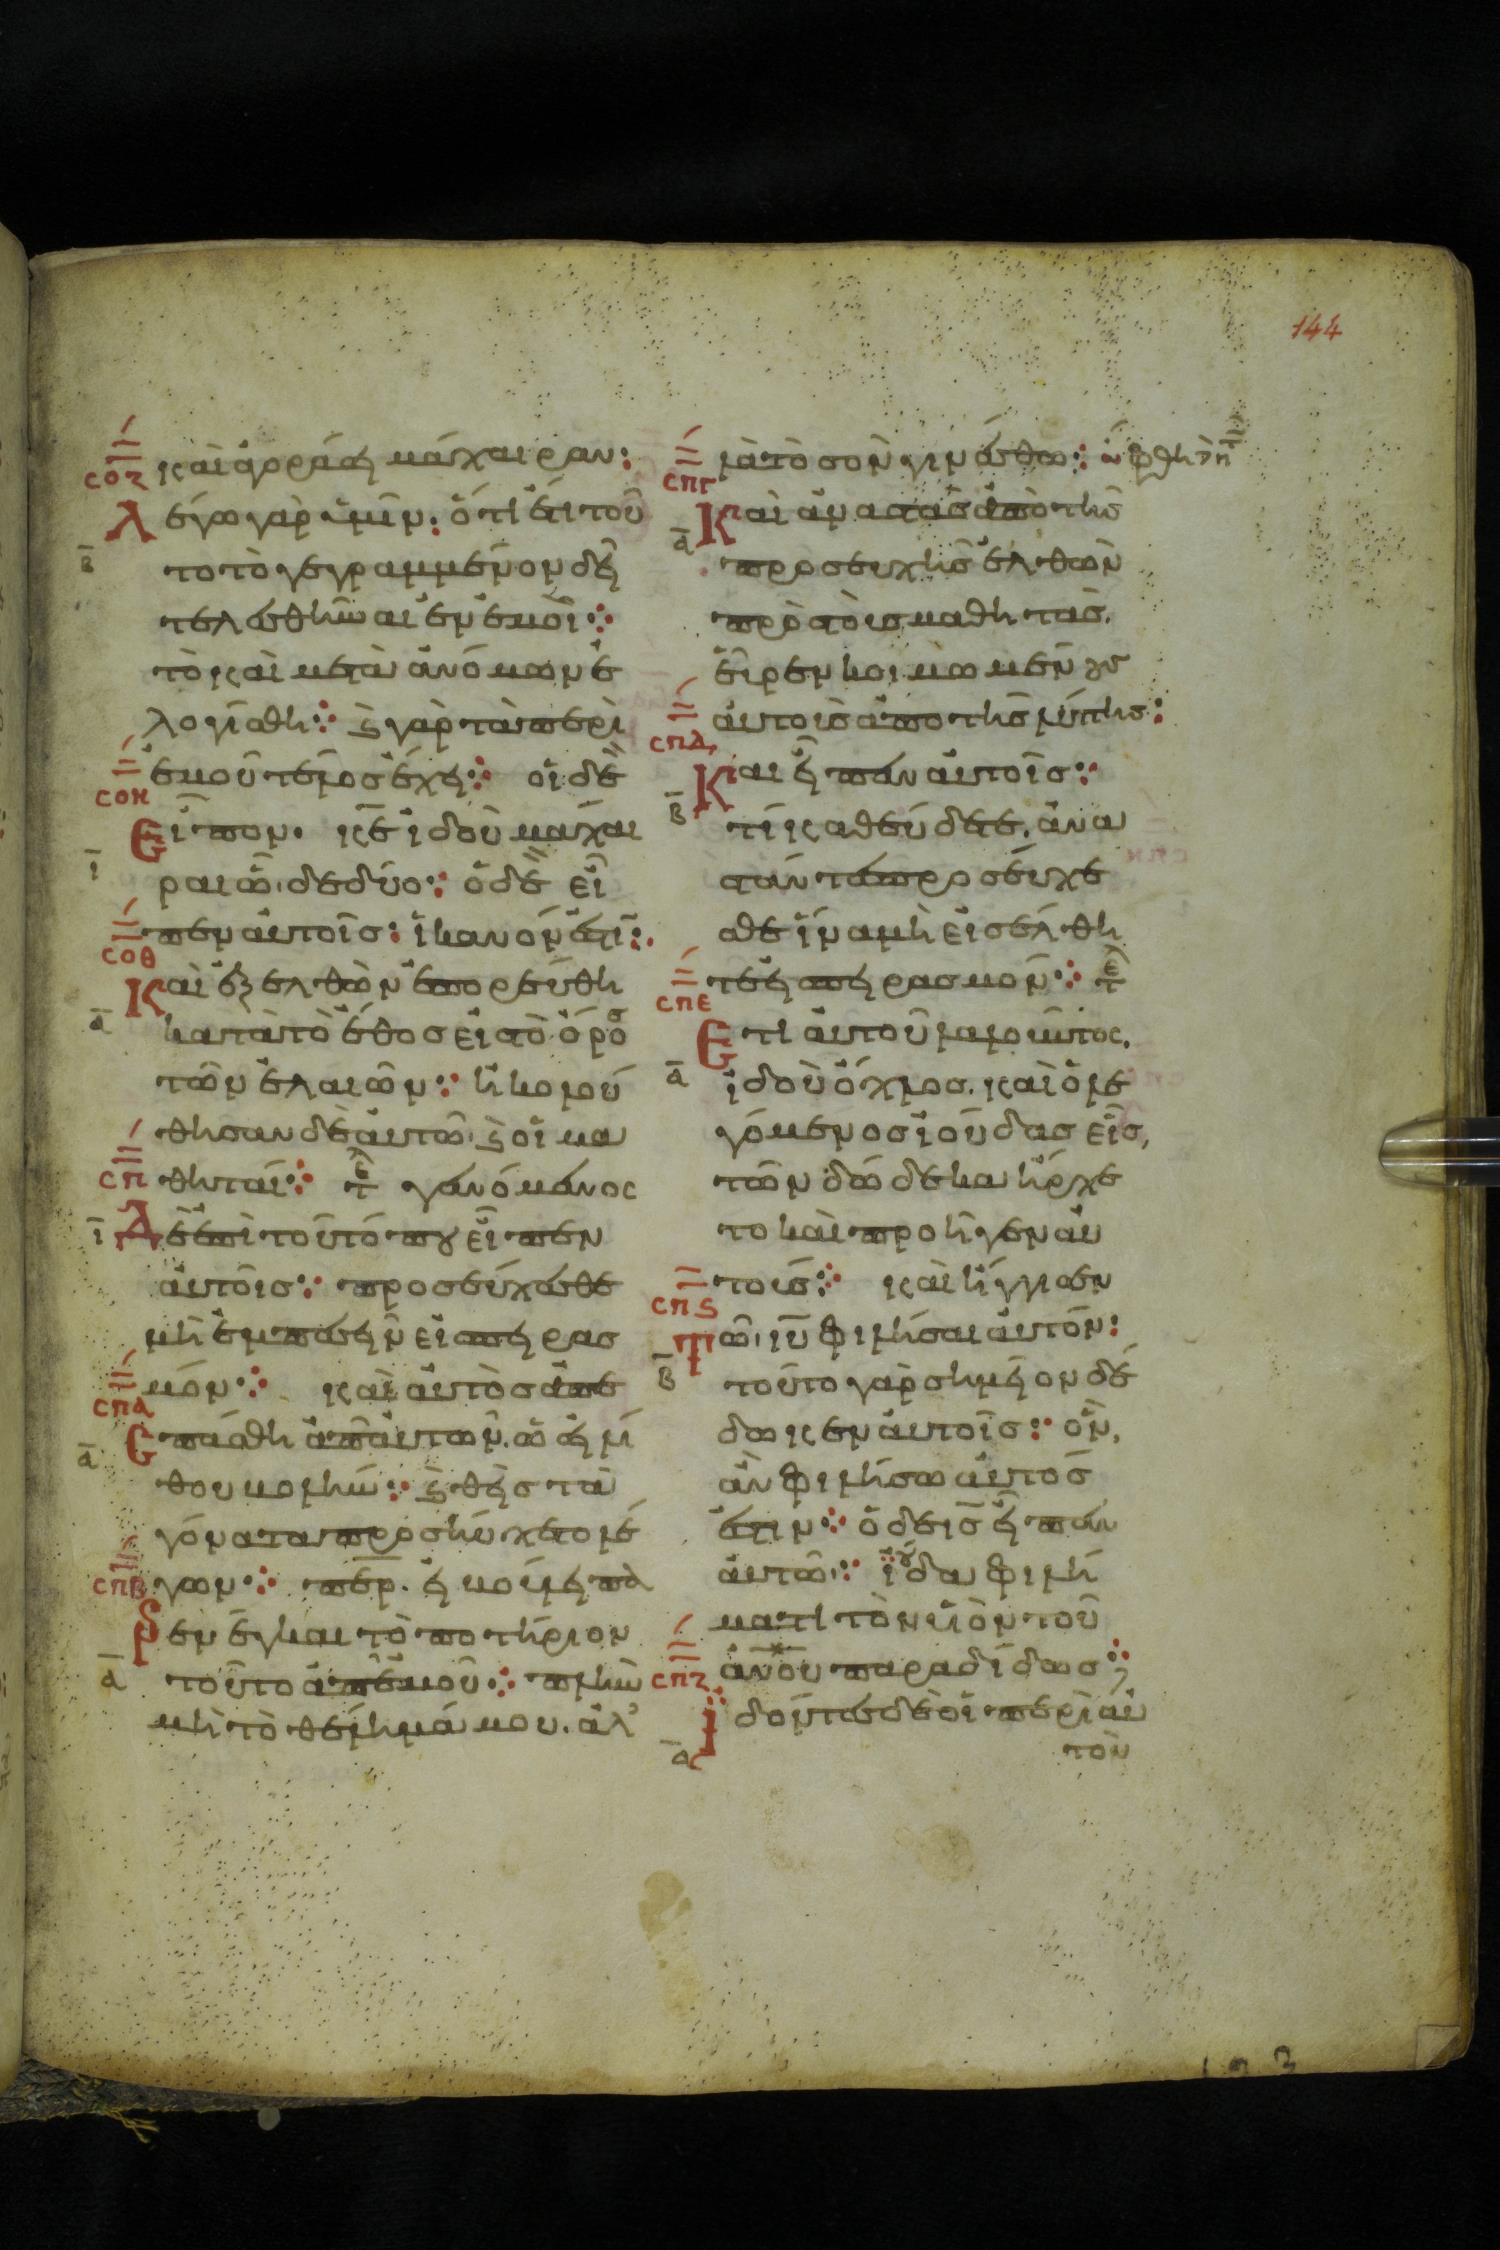 144
σοζ καὶ ἀγοράσει μάχαιραν:
Λέγω γὰρ ὑμῖν: ὅτι ἔτι τοῦ
β το τὸ γεγραμμένον δεῖ
τελεσθῆναι ἐν ἐμοὶ:
τὸ καὶ μετὰ ἀνόμων ἐ
λογίσθη: ϗ γὰρ τὰ περὶ
ἐμοῦ τέλος ἔχει: οἱ δὲ
σοη
Εἶπον. κε ἰδοὺ μάχαι
ι ραι ὧδε δύο: ὁ δὲ εἶ
πεν αὐτοῖς: ἱκανόν ἐστι:
σοθ
Καὶ ἐξελθὼν ἐπορεύθη
α κατὰ τὸ ἔθος εἰς τὸ ὄρος
τῶν ἐλαιῶν: ἠκολού
θησαν δὲ αὐτῶ ϗ οἱ μα
σπ θηταί: τε γενόμενος
ι Δὲ ἐπὶ τοῦ τόπου εἶπεν
αὐτοῖς: προσεύχεσθε
μὴ ἐμπέσειν εἰς πειρασ
μόν: καὶ αὐτὸς ἀπε
σπα
α σπάσθη ἀπ αὐτων. ὡσεὶ λί
θου βολὴν: ϗ θεὶς τὰ
γόνατα προσηύχετο λέ
σπβ γων: περ. εἰ βούλει πα
ρενέγκαι τὸ ποτήριον
α τοῦτο ἀπ ἐμοῦ: πλὴν
μὴ τὸ θέλημά μου. ἀλ
σπγ λὰ τὸ σὸν γινέσθω: ὤφθη
Καὶ ἀναστὰς ἀπὸ τῆς
α προσευχῆς ἐλθὼν
πρὸς τοὺς μαθητὰς.
εὗρεν κοιμωμένους
αὐτοὺς ἀπο τῆς λύπης:
σπδ
Και εἶπεν αὐτοῖς:
β τί καθεύδετε. ἀνα
στάντες προσεύχε
σθε ἵνα μὴ εἰσέλθη
τε εἰς πειρασμόν: τε
σπε
Ἔτι αὐτοῦ λαλοῦντος.
α ἰδοὺ ὄχλος. καὶ ὁ λε
γόμενος ἰούδας εἷς,
τῶν δώδεκα ἤρχε
το καὶ προῆγεν αὐ
τοὺς: καὶ ἤγγισεν
σπϛ
Τῶ ιυ φιλῆσαι αὐτόν:
β τοῦτο γὰρ σημεῖον δέ
δωκεν αὐτοῖς: ὃν,
ἂν φιλήσω αὐτός
ἐστιν: ὁ δε ις εἶπεν
αὐτῶ: ἰούδα φιλή
ματι τὸν υἱὸν τοῦ
ἀνου παραδίδως;
σπζ
Ἰδόντες δὲ οἱ περὶ αὐ
α τὸν